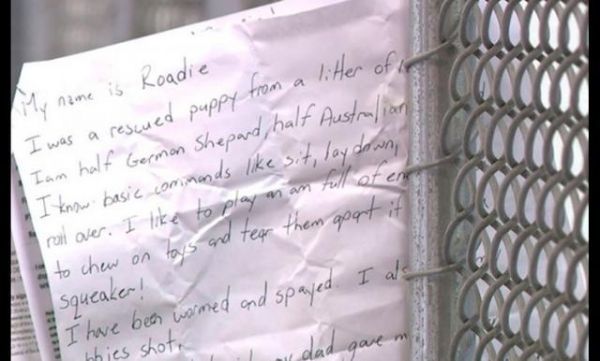 My name is Roadie
I was a rescued puppy from a litter of
I am half German Shepard, half Australian
I know basic commands like sit, lay down,
roll over. I like to play an am full of en
to chew on toys and tear them apart if
squeaker!
I have been wormed and spayed. I als
bbies shot,
my dad gave m